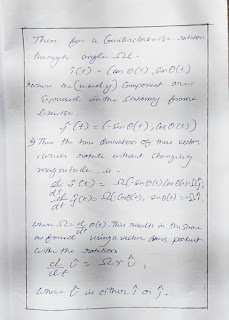 Then for a Counterclockwise rotation
through angle Ωt.
î(t) = (cos θ(t), sin θ(t)
where the (x and y) Component are
Expressed in the stationary frame
likewise
ĵ(t) = (-sin θ(t), cos θ(t))
Thus the time derivation of these vectors
, which rotate without changing
magnitude, is -
d/dt î(t) = Ω(-sin θ(t) cos θ(t) = Ωĵ;
d/dt ĵ(t) = Ω(-cos θ(t), sin θ(t) = -Ωî.
where Ω = d/dt θ(t). This result is the same
as found using a vector cross product
with the rotation
d/dt û = Ω × û,
where û is either î or ĵ.